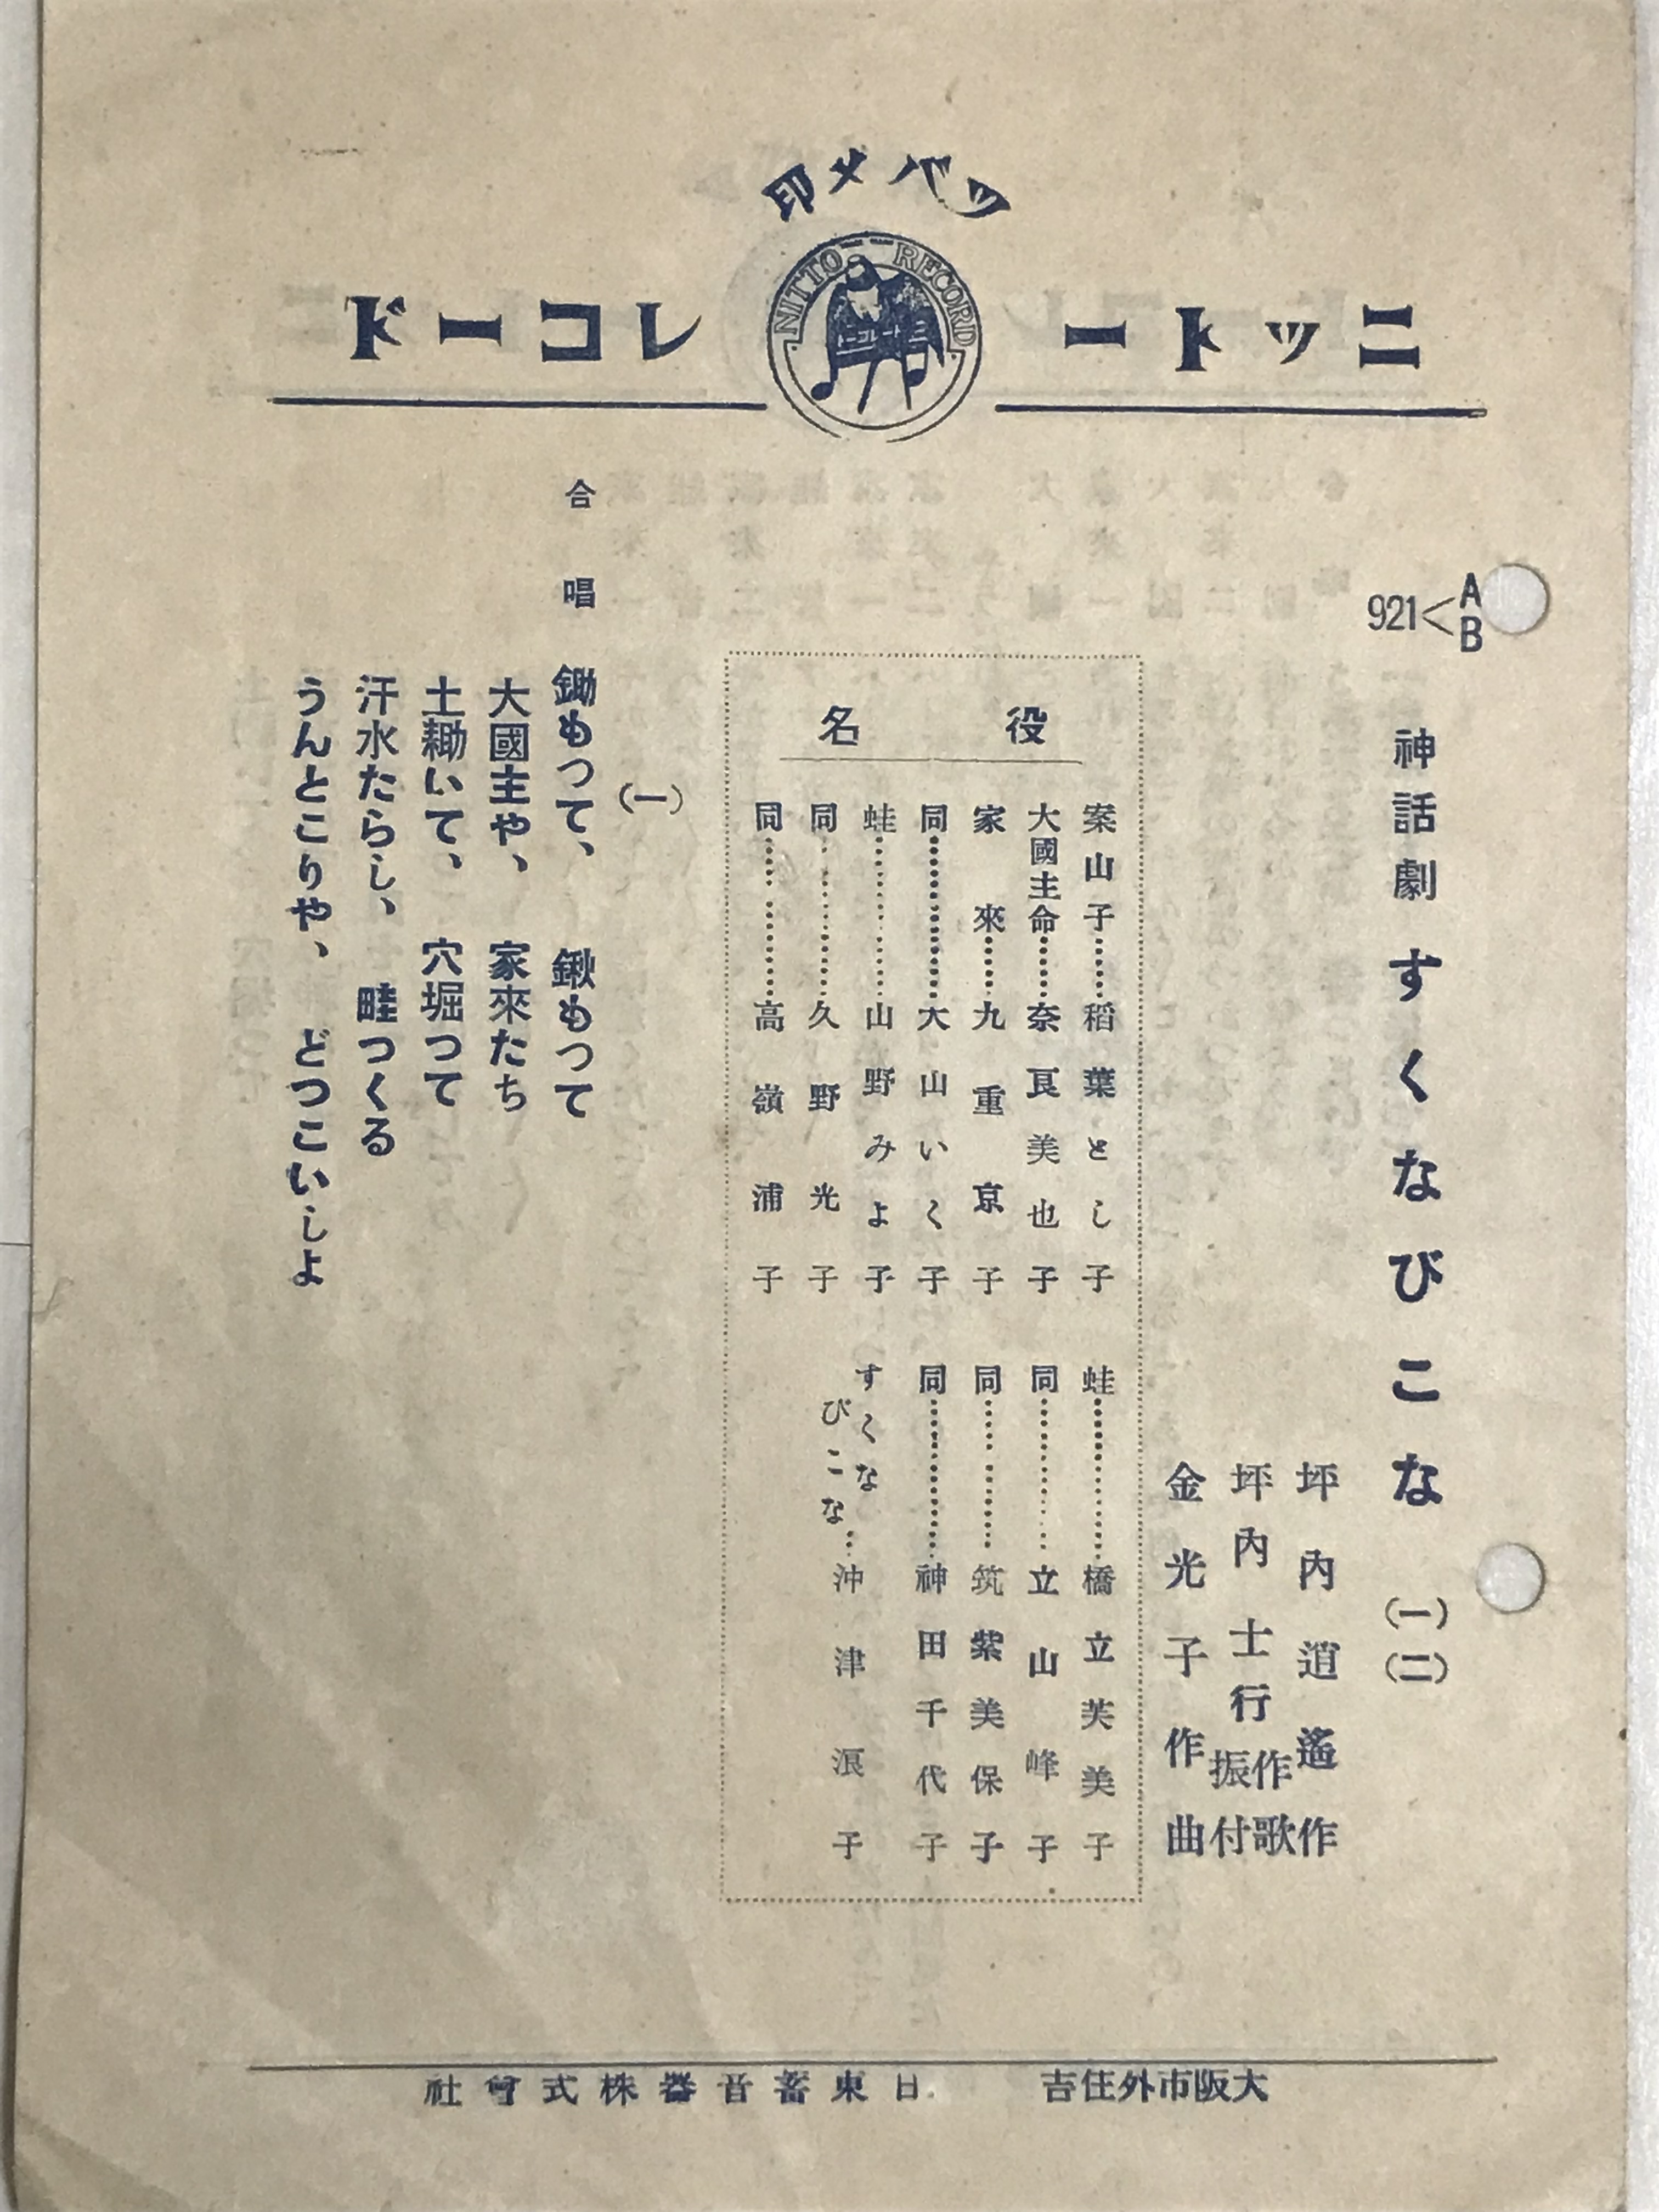 ツバメ印
NITTO RECORD
ニットー
ニットーレコード
921<A B
神話劇 すくなびこな (一)(二)
坪內逍遙作
坪內士行作歌振付
金光子作曲
役名
案山子……稻葉とし子
大國主命……奈良美也子
家來……九重京子
同……大山いく子
蛙……山野みよ子
同……久野光子
同……高嶺浦子
蛙……橋立芙美子
同……立山峰子
同……筑紫美保子
同……神田千代子
すくなびこな…沖津浪子
(一)
合唱 鋤もつて、 鍬もつて
大國主や、 家來たち
土耡いて、 穴堀つて
汗水たらし、 畦つくる
うんとこりや、 どつこいしよ
大阪市外住吉 日東蓄音器株式會社